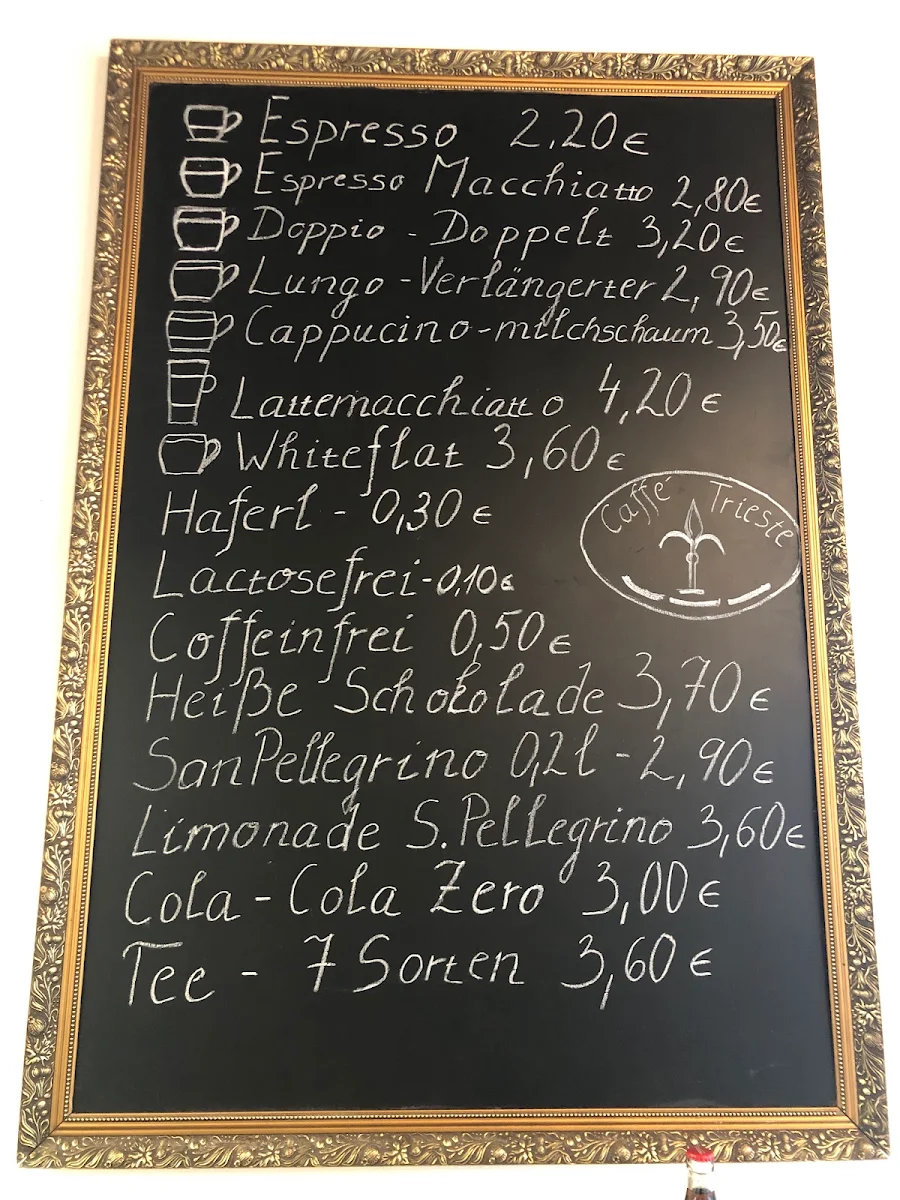 Espresso 2,20€
Espresso Macchiatto 2,80€
Doppio - Doppelt 3,20€
Lungo - Verlängerter 2,90€
Cappucino - milchschaum 3,50€
Lattemacchiatto 4,20€
Whiteflat 3,60€
Caffe Trieste
Haferl - 0,30€
Lactosefrei - 0,10€
Coffeinfrei 0,50€
Heiße Schokolade 3,70€
SanPellegrino 0,2l - 2,90€
Limonade S.Pellegrino 3,60€
Cola - Cola Zero 3,00€
Tee - 7 Sorten 3,60€